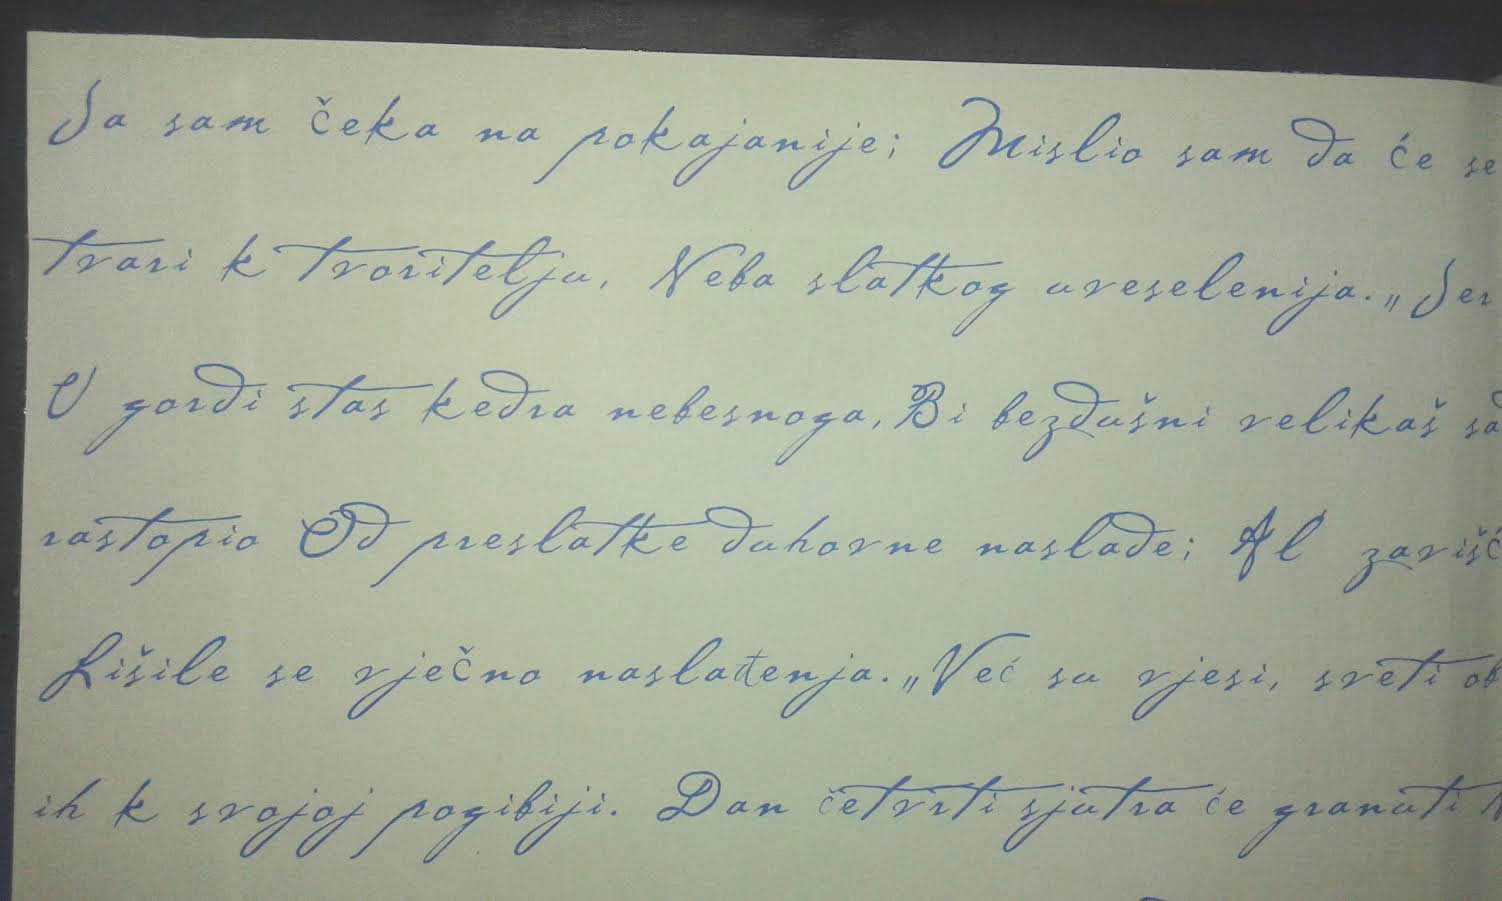 Ja sam čeka na pokajanije; Mislio sam da će se
tvari k tvoritelju, Neba slatkog uveselenija. „Jer
U gordi stas kedra nebesnoga, Bi bezdušni velikaš
rastopio Od preslatke duhovne naslade; Al
Lišile se vječno naslađenja. „Već su vjesi, sveti
ih k svojoj pogibiji. Dan četvrti sjutra će granuti